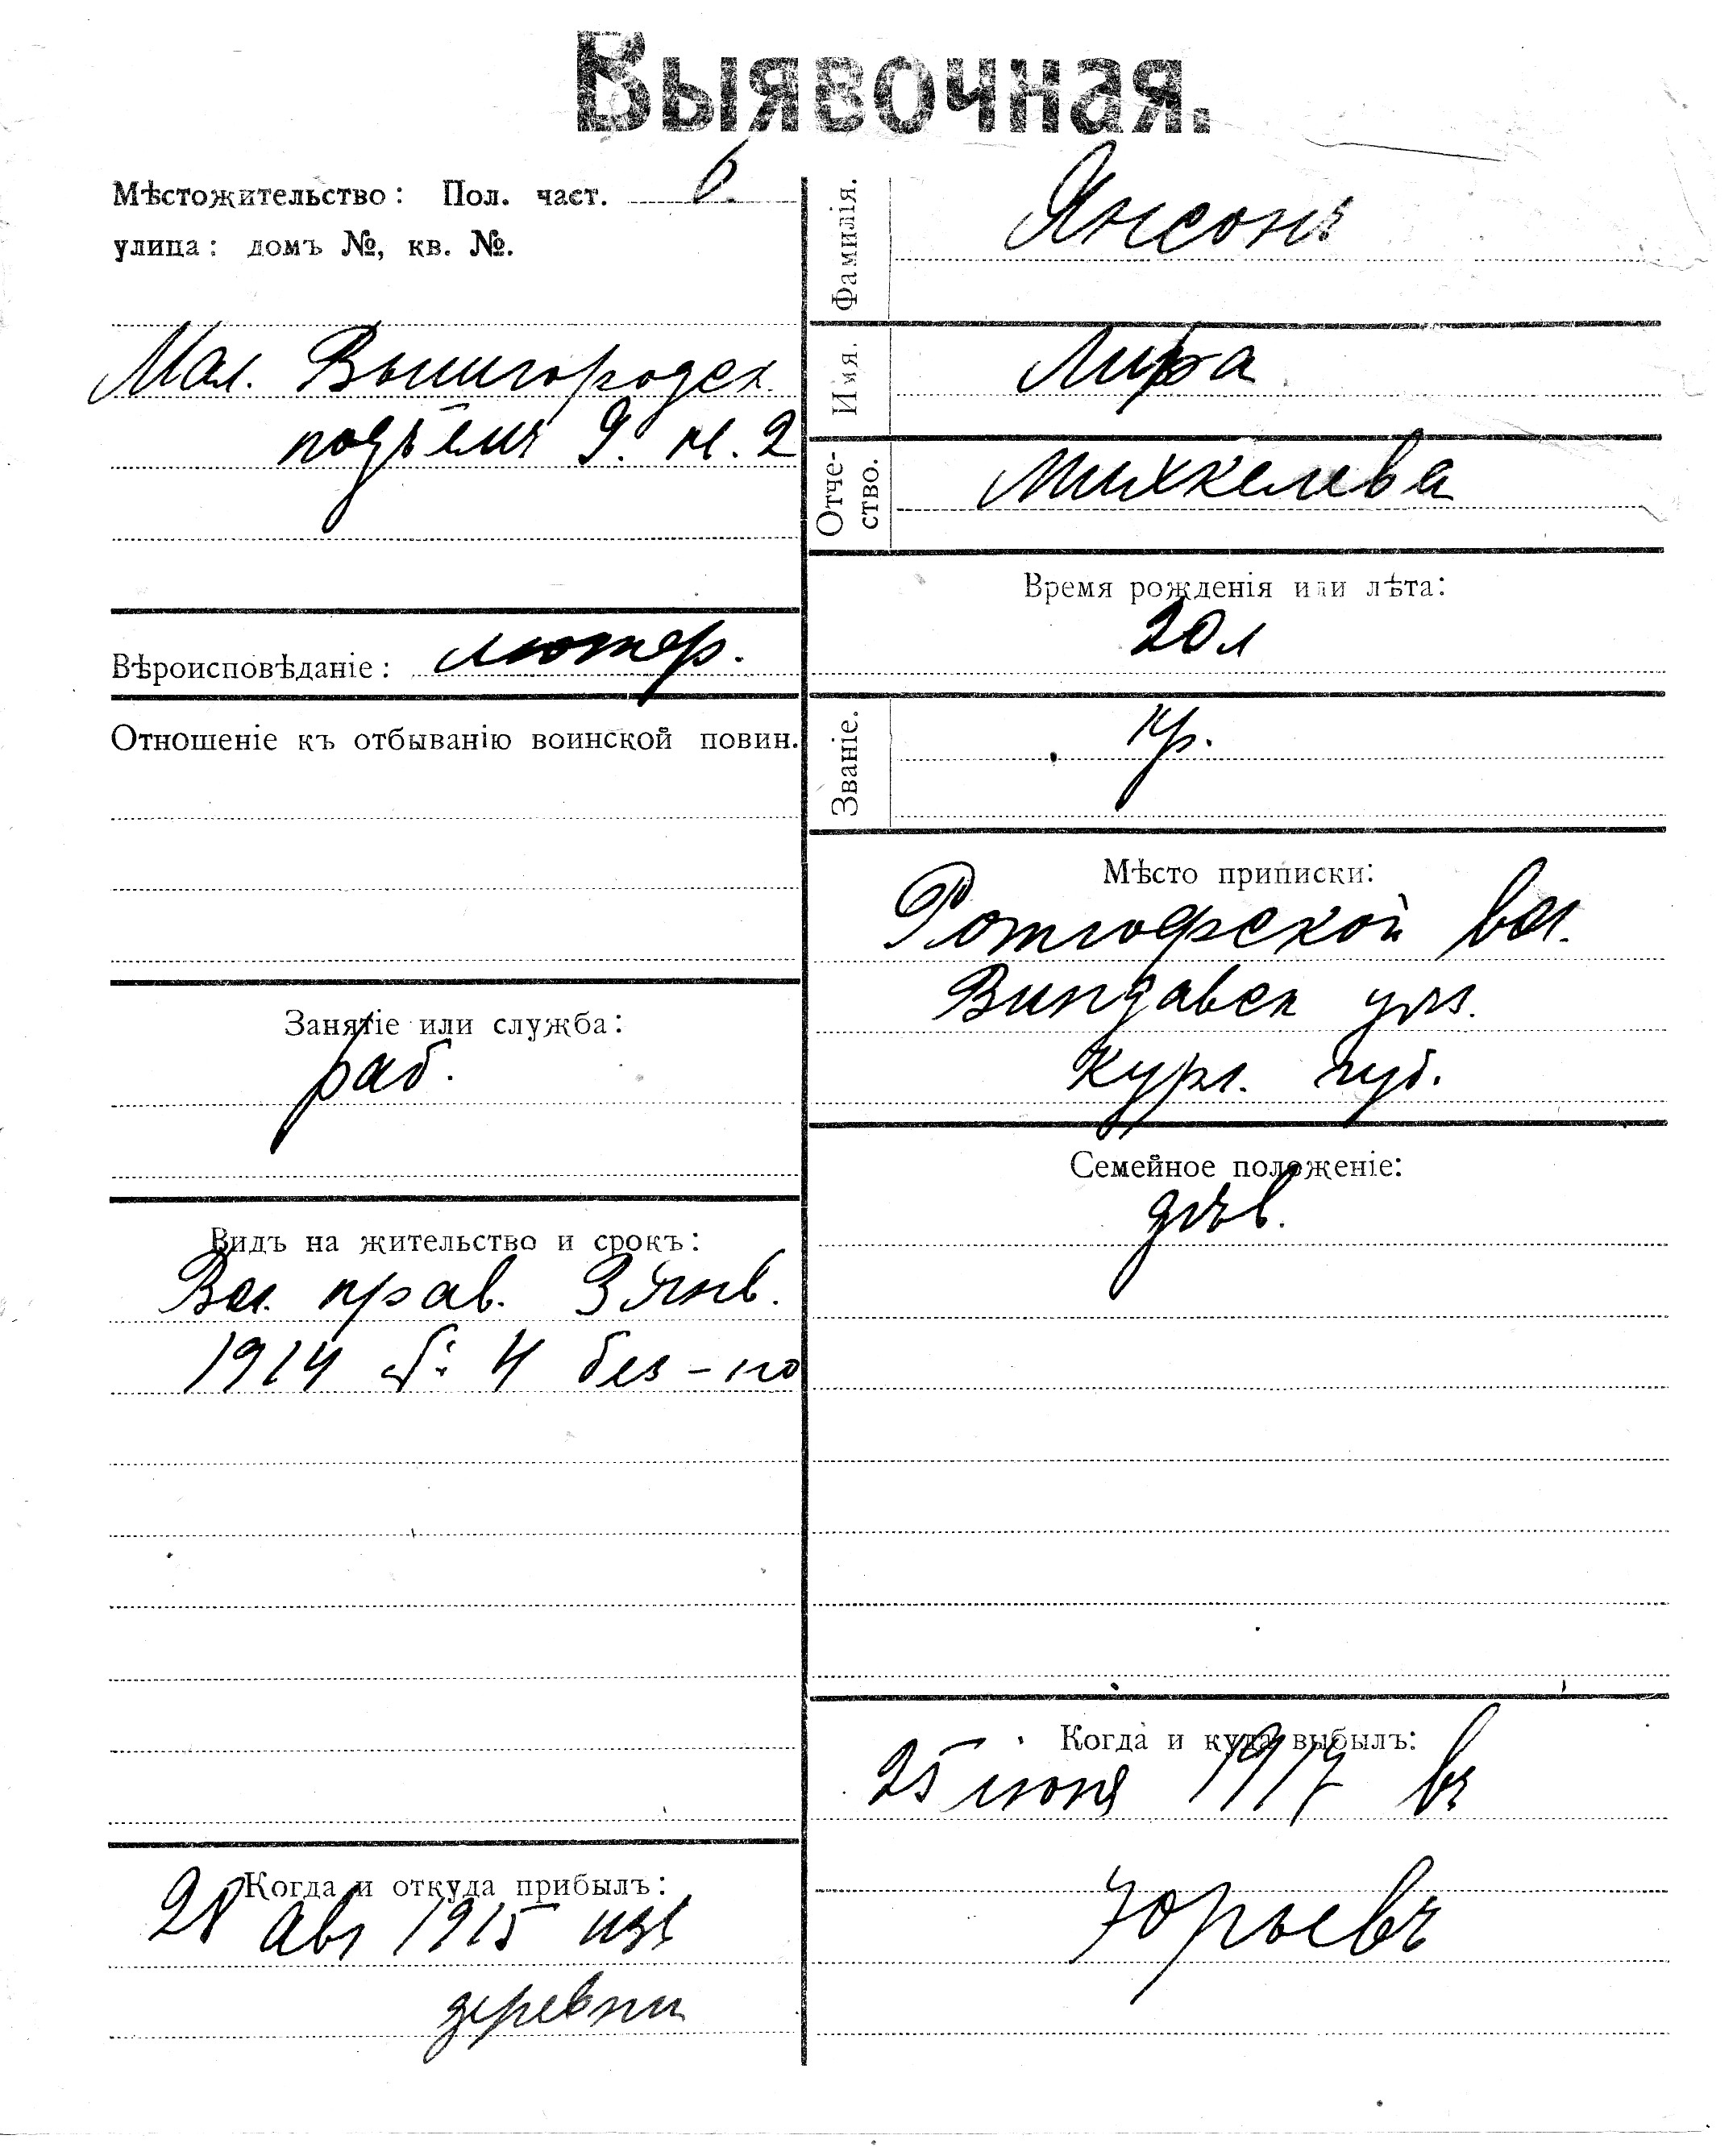 Выявочная.
Мѣстожительство: Пол. част. 6.
улица: домъ №, кв. №.
Мал. Вышгородск.
подъёмъ 9. кв. 2
Вѣроисповѣданіе: лютер.
Отношеніе къ отбыванію воинской повин.
Занятіе или служба:
раб.
Видъ на жительство и срокъ:
Вол. прав. 3 янв.
1914 № 4 без-но
Когда и откуда прибылъ:
28 авг 1915 изъ
деревни
Фамилія. Янсонъ
Имя. Лира
Отче-
ство. Михкелева
Время рожденія или лѣта:
20 л
Званіе. кр.
Мѣсто приписки:
Ротгофской вол.
Виндавск уѣз.
Курл. губ.
Семейное положеніе:
дѣв.
Когда и куда выбылъ:
25 июня 1917 въ
Юрьевъ